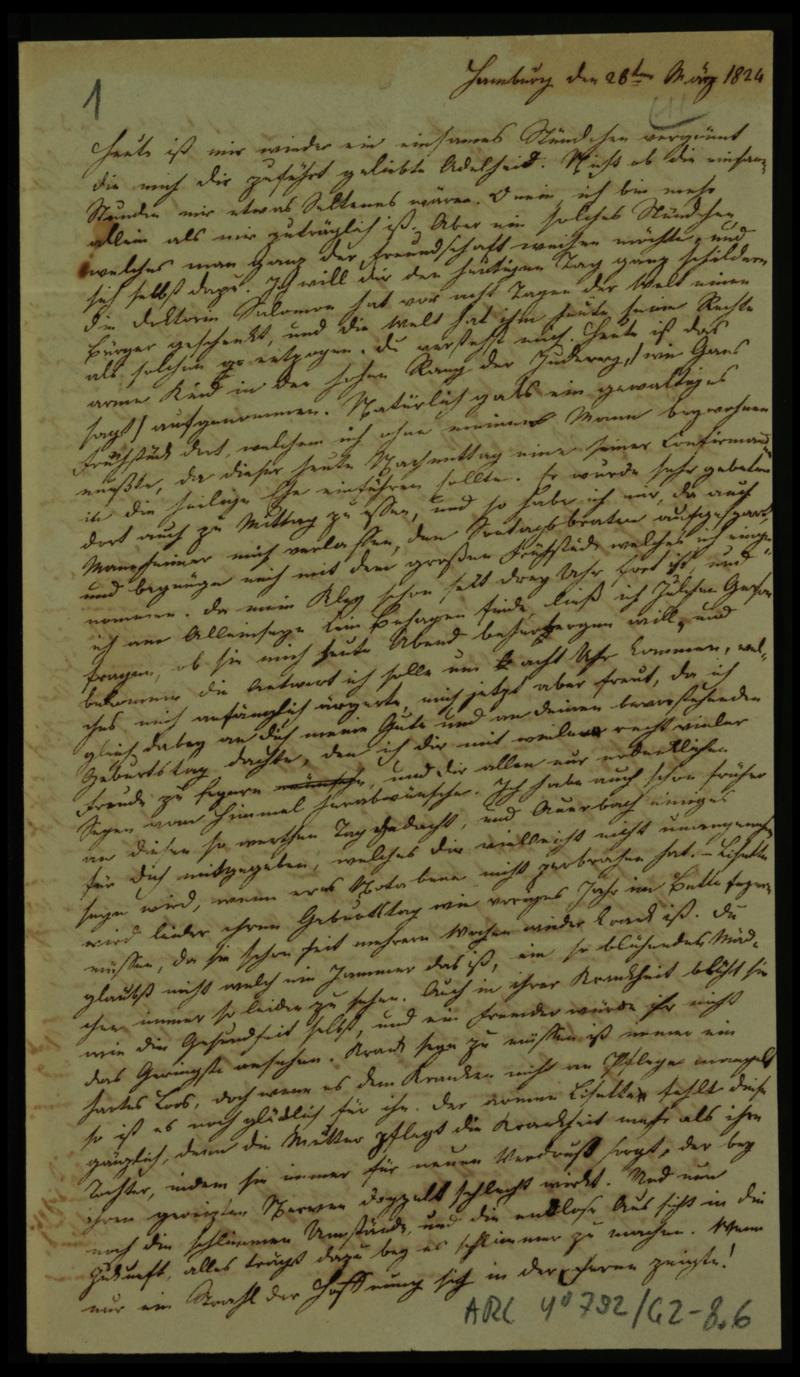 1
Hamburg den 28ten März 1824
Heute ist mir wieder ein einsames Stündchen vergönnt
die mich dir zuführt geliebte Adelheid. Nicht als die einsam
Stunden mir etwas Seltenes wären. O nein, ich bin mehr
allein als mir zuträglich ist. Aber ein solches Stündchen
welches man ganz der Freundschaft weihen möchte, und
sich selbst dazu. Ich will dir den heutigen Tag ganz schildern
die Doktorin Salomon hat vor acht Tagen der Welt einen
Bürger geschenkt, und die Welt hat ihm heute seine Rechte
als solchem entzogen. Du verstehst mich. Heute ist das
arme Kind in den hohen Rang der Juden (wie Gans
sagt) aufgenommen. Natürlich gabs ein gewaltiges
Frühstück dort, welchem ich ohne meinen Mann beywohnen
mußte, da dieser heute Nachmittag eine seiner Confirmand
in die heilige Ehe einführen sollte. Er wurde sehr gebeten
dort auch zu Mittag zu essen, und so habe ich mir, da auch
Mannheimer mich verlassen, den Sontagsbraten aufgespart
und begnüge mich mit dem großen Frühstück welches ich einge-
nommen. Da mein Kley schon seit drey Uhr fort ist, und
ich am Alleinseyn kein Behagen finde, ließ ich Julchen
fragen, ob sie mich heute Abend beherbergen will, und
bekomme die Antwort ich solle um acht Uhr kommen, wel-
ches mich anfänglich ärgerte, mich jetzt aber freut, da ich
gleich dabey an dich meine Gute und an deinen bevorstehenden
Geburtstag dachte, den ich dir mit recht vieler
Freude zu feyern wünsche, und dir allen nur erdenklichen
Segen vom Himmel herabwünsche. Ich habe auch schon früher
an diesen so werthen Tag gedacht, und Auerbach einiges
für dich mitgegeben, welches dir vielleicht nicht unangenehm
seyn wird, wenn ers Nota bene nicht zerbrochen hat. – Lisette
wird leider ihren Geburtstag wie voriges Jahr im Bette feyern
müssen, da sie schon seit mehrern Wochen wieder krank ist. Du
glaubst nicht welch ein Jammer das ist, ein so blühendes Mäd-
chen immer so leiden zu sehen. Auch in ihrer Krankheit blüht sie
wie die Gesundheit selbst, und ein Fremder würde ihr nicht
das Geringste ansehen. Krank seyn zu müssen ist immer ein
hartes Loos, doch wenn es dem Kranken nicht an Pflege mangelt
so ist es noch glücklich für ihn. Der armen Lisette fehlt diese
gänzlich, denn die Mutter pflegt die Krankheit mehr als ihre
Tochter, indem sie immer für neuen Verdruß sorgt, der bey
ihren gereizten Nerven doppelt schlecht wirkt. Und nun
noch die schlimmen Umstände, und die endlose Aussicht in die
Zukunft, alles trägt dazu bey es schlimmer zu machen. Wenn
nur ein Strahl der Hoffnung sich in der Ferne zeigte!
ARC 4° 792/G2-8.6